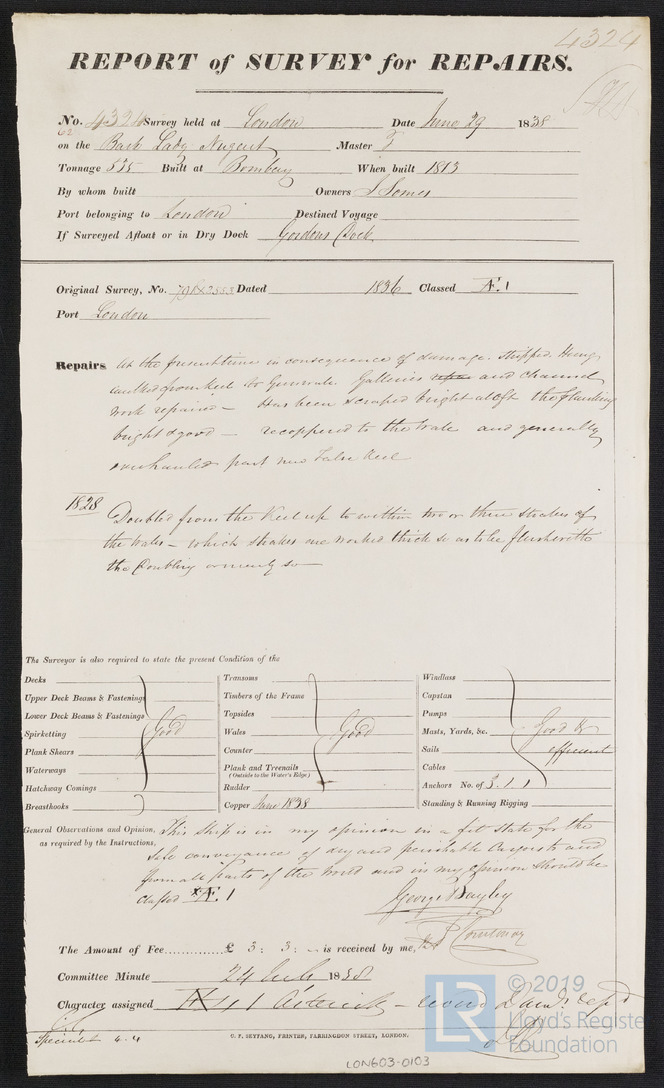 4324
REPORT of SURVEY for REPAIRS.
No. 4324 Survey held at London Date June 29 1838
on the Bark Lady Nugent Master
Tonnage 535 Built at Bombay When built 1813
By whom built Owners J Somes
Port belonging to London Destined Voyage
If Surveyed Afloat or in Dry Dock Gordons Dock
Original Survey, No. Dated 1836 Classed Æ 1
Port London
Repairs At the present time in consequence of damage. Stripped. Hung
caulked from Keel to Gunwale Galleries and channel
work repaired — Has been scraped bright aloft the planking
bright & good — recoppered to the wale and generally
overhauled part new False Keel
1828 Doubled from the Keel up to within two or three strakes of
the wales — which strakes are worked thick so as to be flush with
the Doubling or nearly so —
The Surveyor is also required to state the present Condition of the
Decks
Upper Deck Beams & Fastenings
Lower Deck Beams & Fastenings
Spirketting Good
Plank Shears
Waterways
Hatchway Comings
Breasthooks
Transoms
Timbers of the Frame
Topsides
Wales Good
Counter
Plank and Treenails
(Outside to the Water's Edge)
Rudder
Copper June 1838
Windlass
Capstan
Pumps
Masts, Yards, &c. Good &
Sails efficient
Cables
Anchors No. of 3. 1. 1
Standing & Running Rigging
General Observations and Opinion, This Ship is in my opinion in a fit state for the
as required by the Instructions, safe conveyance of dry and perishable Cargoes to and
from all parts of the world and in my opinion should be
classed Æ 1
George Bayley
P Courtenay
The Amount of Fee £ 3 : 3 : is received by me,
Committee Minute 24 July 1838
Character assigned Æ 1
C. F. SEYFANG, PRINTER, FARRINGDON STREET, LONDON.
LON603-0103
LR
© 2019
Lloyd's Register
Foundation